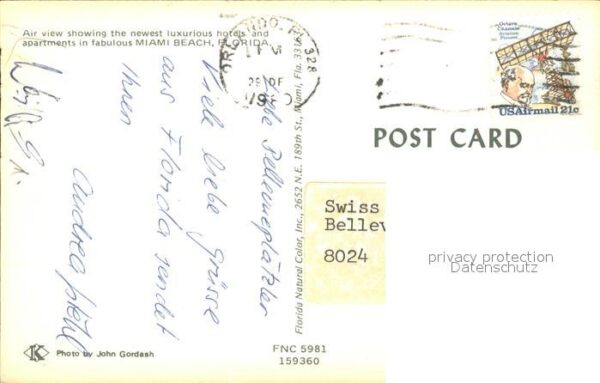 Air view showing the newest luxurious hotels and
apartments in fabulous MIAMI BEACH, FLORIDA.
Liebe Bellevueplätzler
Viele liebe Grüsse
aus Florida sendet
Ihnen
Andrea
ORLANDO, FL 328
PM
1980
Octave
Chanute
Aviation
Pioneer
USAirmail 21c
POST CARD
Swiss
Bellev
8024
privacy protection
Datenschutz
Florida Natural Color, Inc., 2652 N.E. 189th St., Miami, Fla.
K
Photo by John Gordash
FNC 5981
159360